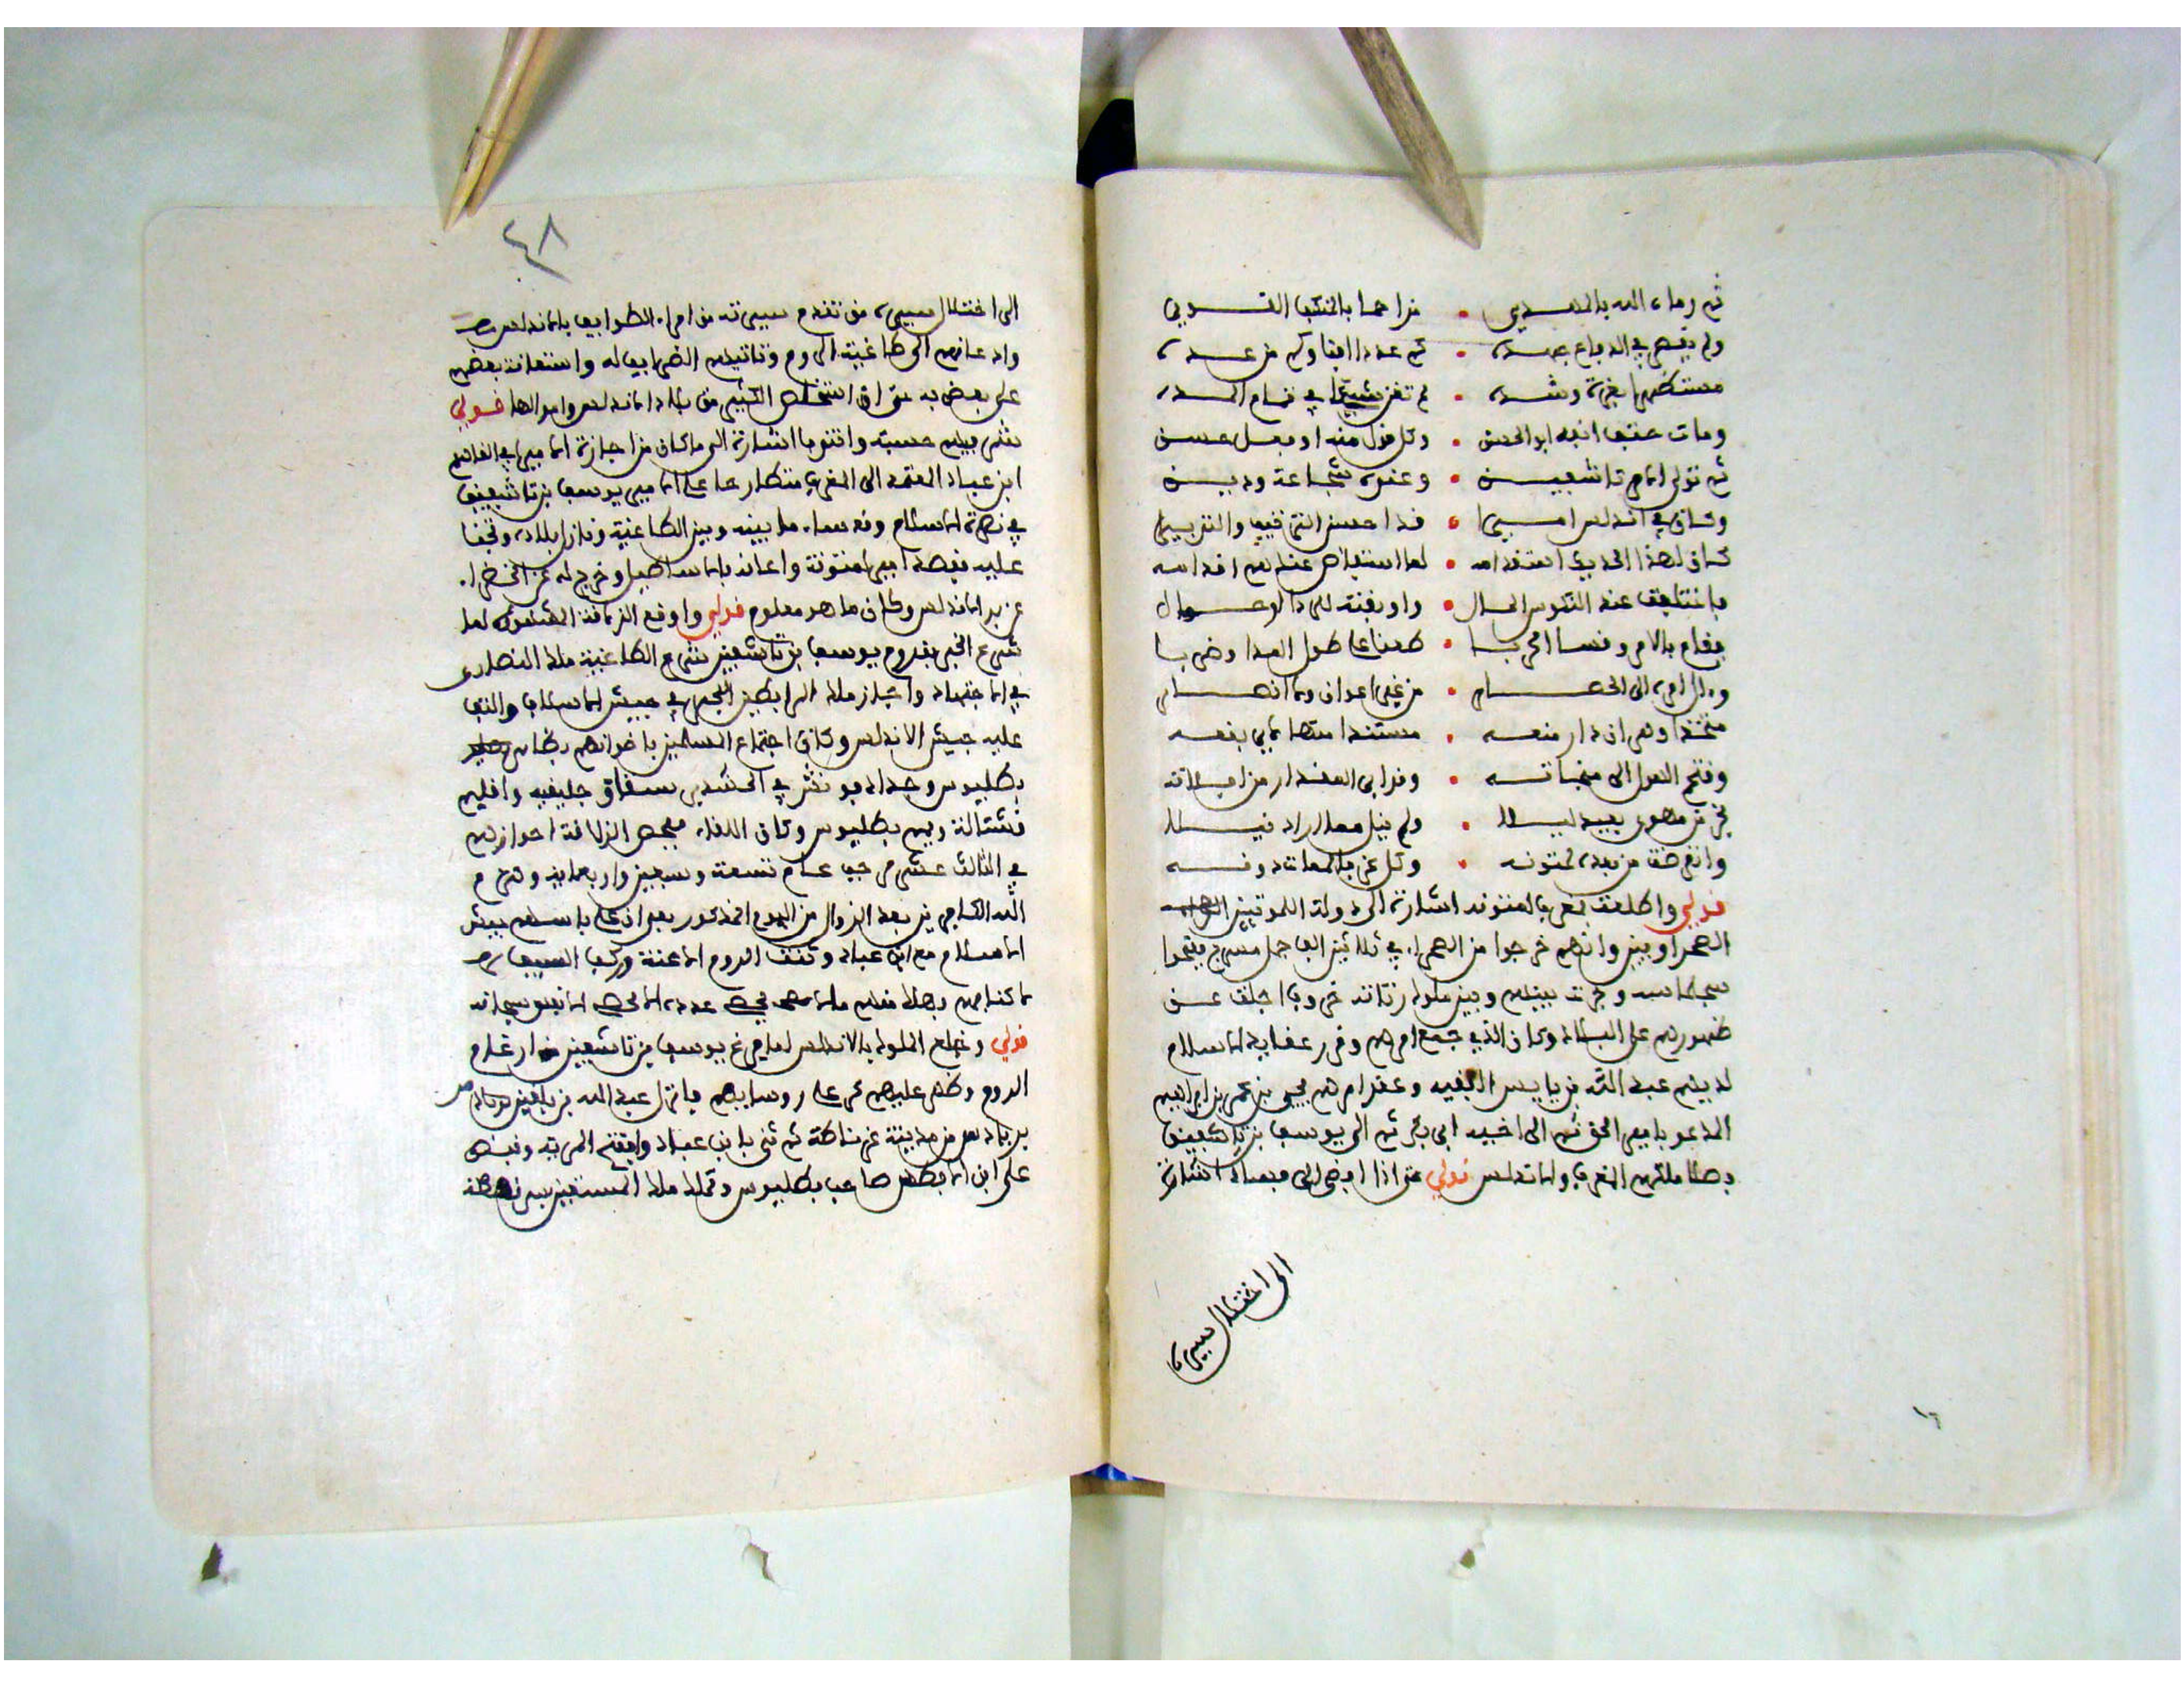 ثم رماه الله بالمهدي • مزاحما بالمنكب القوي
ولم يقصر في الدفاع جهده • كم عددا افنا وكم من عده
مستظهرا بعزة وشده • لم تغن شيئا في تمام المده
ومات عنها ابنه ابو الحسن • وكل قول منه او فعل حسن
ثم تولى الامر تاشفين • وعنده شجاعة ودين
وكان في اندلس اميرا • قد احسن الترتيب والتدبيرا
كان لهذا الحدب استقدامه • لما استفاض عندهم اقدامه
فاختلفت عند النفوس الحال •
فقام بالامر وقاسا الحربا • طعنا على طول المدا وضربا
وءال امره الى الحصار • من غير اعوان ولا انصار
متخذا وهران دار منعه • مستندا منها لاي بقعه
وفتح الهول الى منجاته • وفرا بي المقدار من افلاته
فخر من مهوى بعيد ليلا • ولم ينل مما اراد نيلا
وانقرضت من بعده لمتونه • وكل عز فالممات دونه
قولي واطلعت لمغرب لمتونه اشارة الى دولة اللمتونيين
الصحراويين وانهم خرجوا من الصحراء في ثلاثين الف جمل مسرج ففتحوا
سجلماسه وجرت بينهم وبين ملوك زناتة حروب اجلت عن
ظهورهم على البلاد وكان الذي جمع امرهم وقرر عقايد الاسلام
لديهم عبد الله بن ياسين الفقيه وعقد امرهم يحيى بن عمر بن ابراهيم
المدعو بامير الحق ثم الى اخيه ابي بكر ثم الى يوسف بن تاشفين
فصار ملكهم المغرب والاندلس قولي حتى اذا افضى الى اشارة
الى اختلال سيره
الى اختلال سيره من تقدم سيرته من امراء الطوايف بالاندلس
واذعانهم الى طاغية الروم وتاديتهم الضرايب له واستعانة بعضهم
على بعض به حتى ان استخلص الكثير من بلاد الاندلس واموالها قولي
شمر فيهم حسبة واتنوبا اشارة الى ما كان من اجازة الامير ابي القاسم
ابن عباد المعتمد الى المغرب متطارحا على الامير يوسف بن تاشفين
في نصرة الاسلام وقد ساء ما بينه وبين الطاغية ونازل بلاده وتجنا
عليه فقصد امير لمتونة واعانه بالاساطيل وخرج له عن الخضراء
من بر الاندلس وكان ما هو معلوم قولي واوقع الزلاقة المشهورة لما
شرع الخبر بقدوم يوسف بن تاشفين شرع الطاغية ملك النصارى
في الاحتفاد واجتاز ملك المرابطين البحر في جيش الاسلام والتف
عليه جيش الاندلس وكان اجتماع المسلمين باخوانهم بظاهر
بطليوس وجد ادفونش في الحشد سفاق جليقيه واقليم
قشتالة ويمم بطليوس وكان اللقاء بفحص الزلاقة احوازهم
في الثالث عشر رجب عام تسعة وسبعين واربعماية وهزم
الله الكافرين بعد الزوال من اليوم المذكور بعد ان
الاسلام مع ابن عباد وكنف الروم الاعنة وركب السيف
قولي وخلع الملوك بالاندلس لما فرغ يوسف بن تاشفين من ارغام
الروم وظهر عليهم كر على روسايهم فانزل عبد الله بن بلقين
بن باديس من مدينة غرناطة ثم ثنى بابن عباد وافتتح المرية وقبض
على ابن الافطس صاحب بطليوس وتملك ملك المستعين